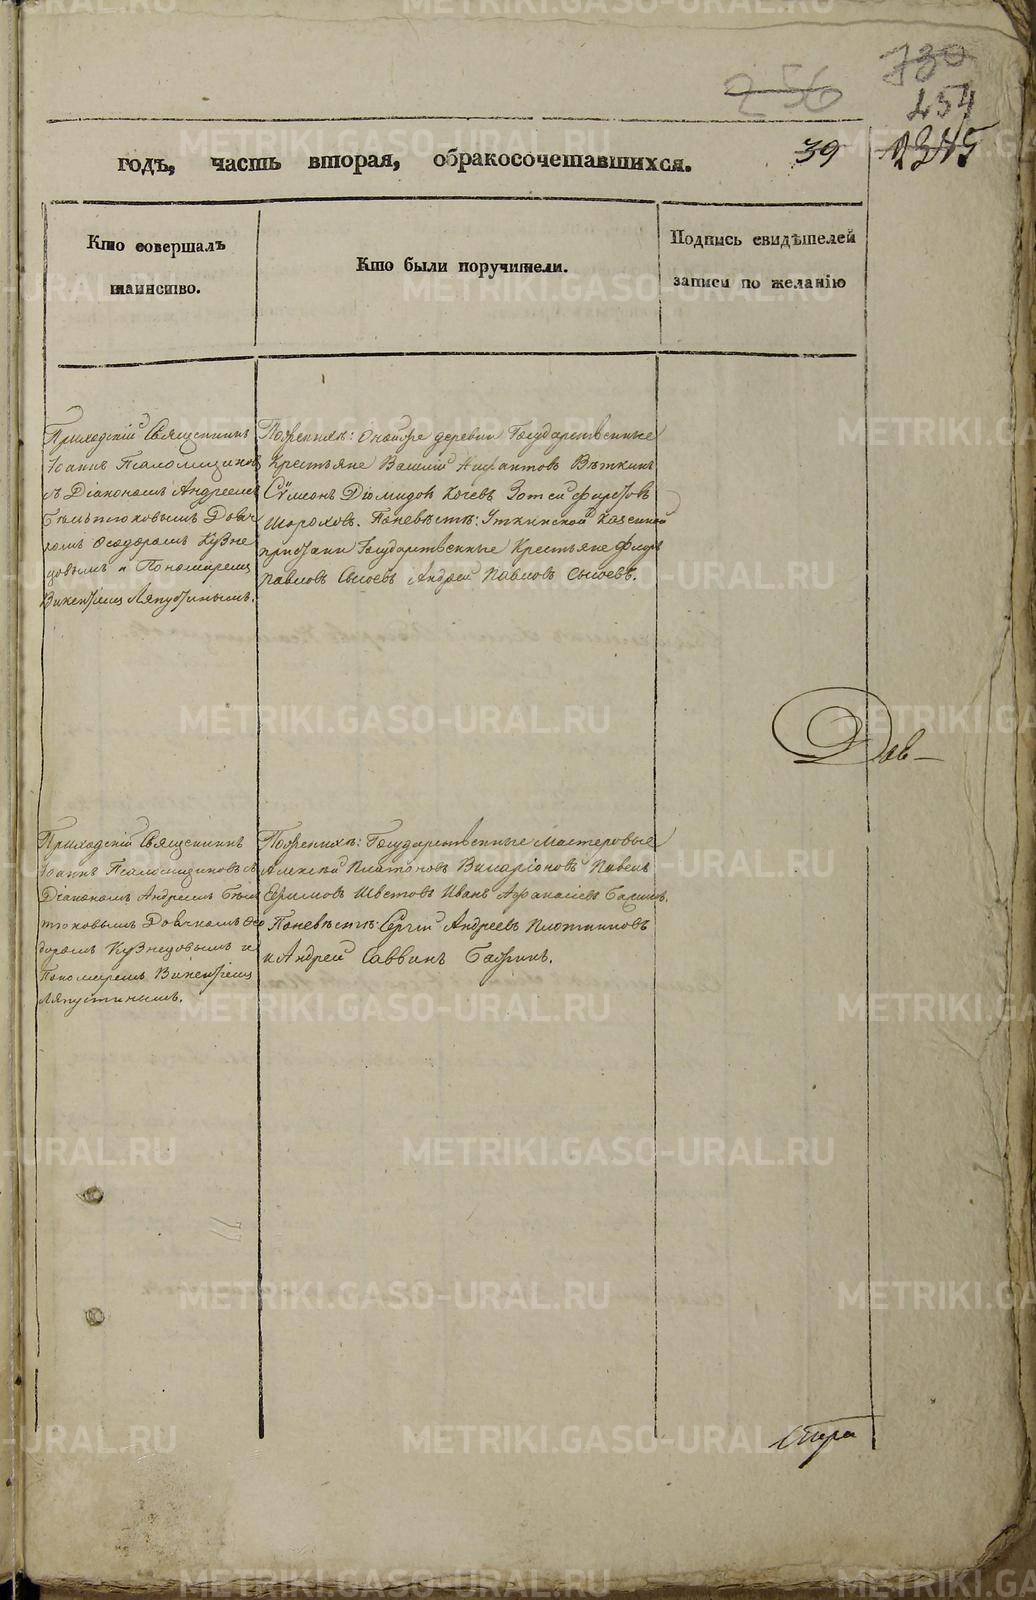 256
730
254
1345
39
годъ, часть вторая, обракосочетавшихся.
Кто совершалъ
таинство.
Кто были поручители.
Подпись свидѣтелей
записи по желанію
Приходскій Священникъ
Іоаннъ Псаломщиковъ
съ Діакономъ Андреемъ
Бѣльтюковымъ Дьяч
комъ Ѳеодоромъ Кузне
цовымъ и Пономаремъ
Викентіемъ Ляпустинымъ.
По женихѣ: Онаже деревни Государственные
Крестьяне Василій Нифантовъ Вѣткинъ
Сѵмеонъ Діомидовъ Кочевъ Зотей
Шороховъ. По невѣстѣ: Уткинской Казенной
пристани Государственные Крестьяне Федоръ
Павловъ Сысоевъ Андрей Павловъ Сысоевъ.
Дов
Приходскій Священникъ
Іоаннъ Псаломщиковъ съ
Діакономъ Андреемъ Бѣль
тюковымъ Дьячкомъ Ѳео
доромъ Кузнецовымъ и
Пономаремъ Викентіемъ
Ляпустинымъ.
По женихѣ: Государственные мастеровые
Алексѣй Платоновъ Виларіоновъ Павелъ
Ефимовъ Швецовъ Иванъ Афанасіевъ
По невѣстѣ: Сергій Андреевъ Плотниковъ
и Андрей Саввинъ
METRIKI.GASO-URAL.RU